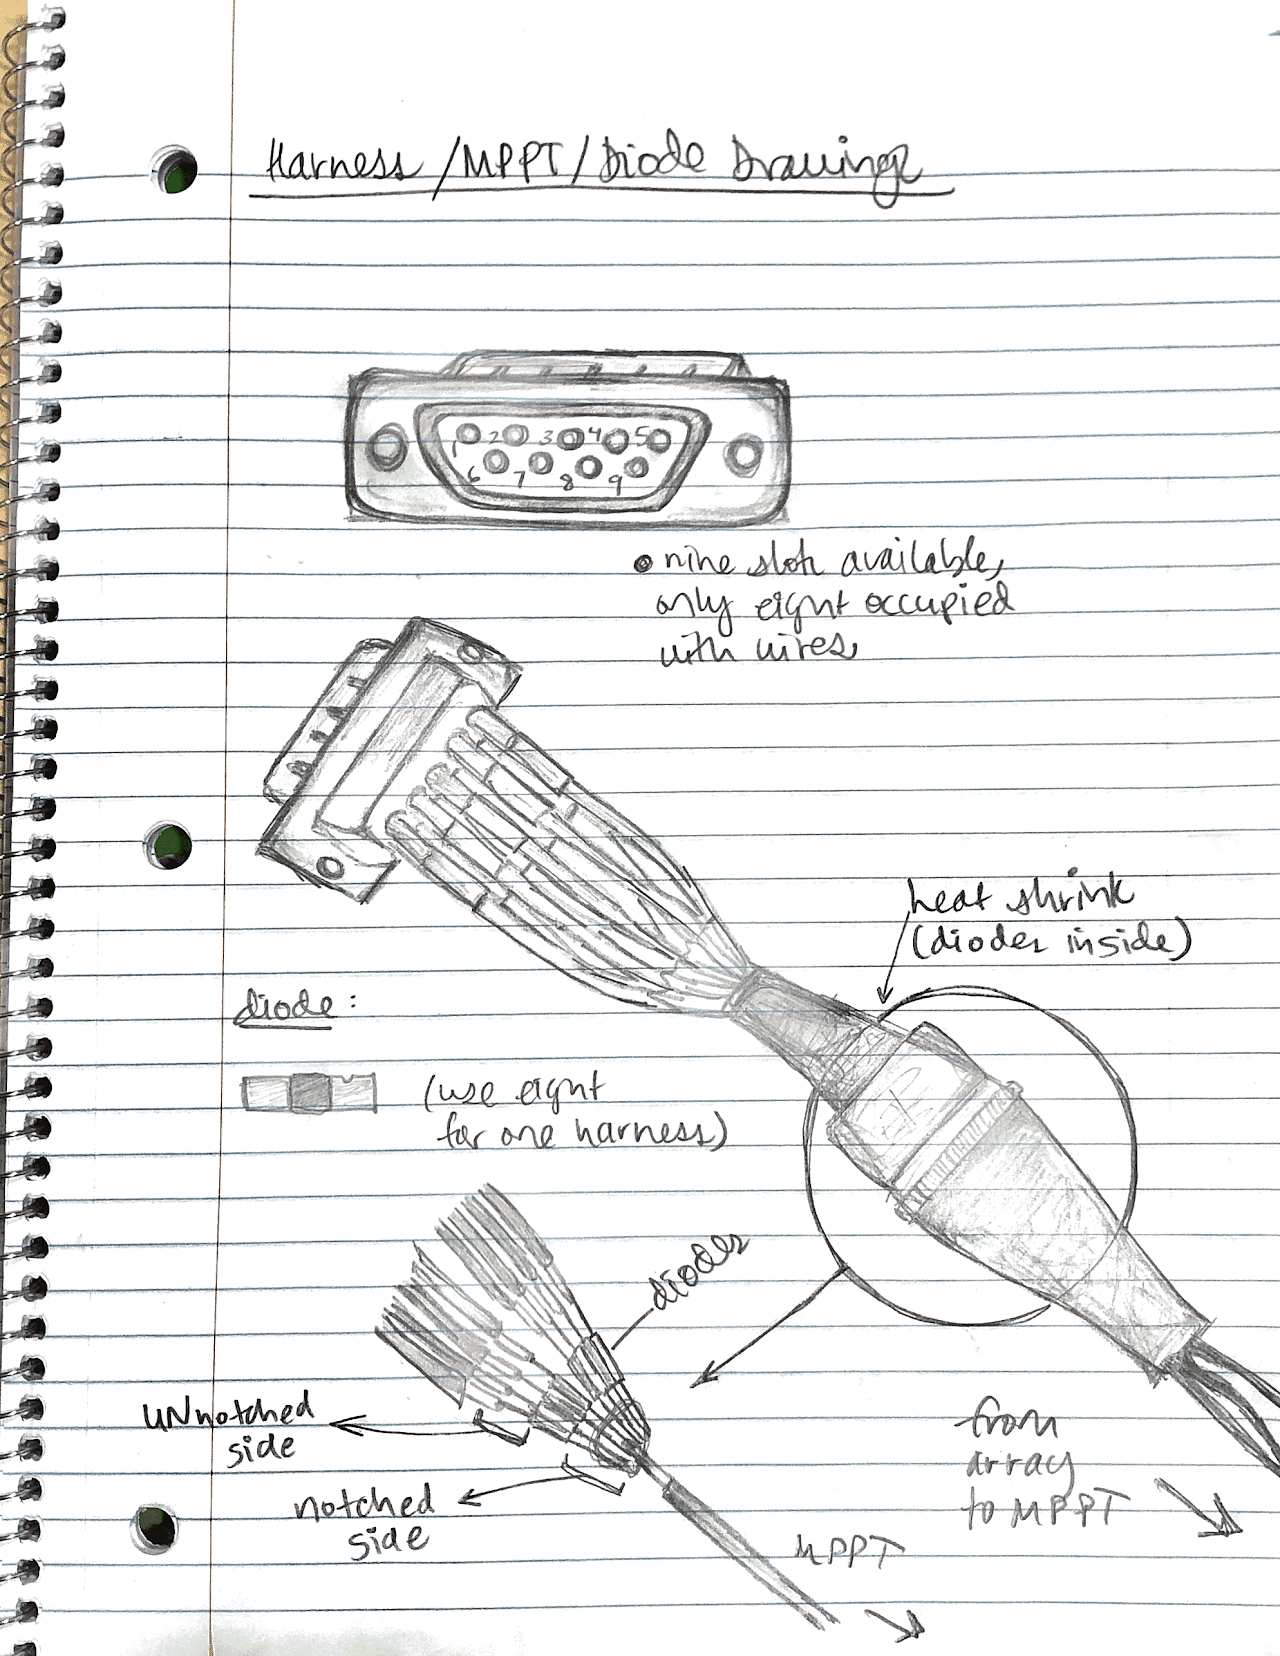 Harness/MPPT/Diode Drawings
1 2 3 4 5
6 7 8 9
nine slots available,
only eight occupied
with wires
heat shrink
(diodes inside)
diode:
(use eight
for one harness)
diodes
UNnotched
side
notched
side
from
array
to MPPT
MPPT